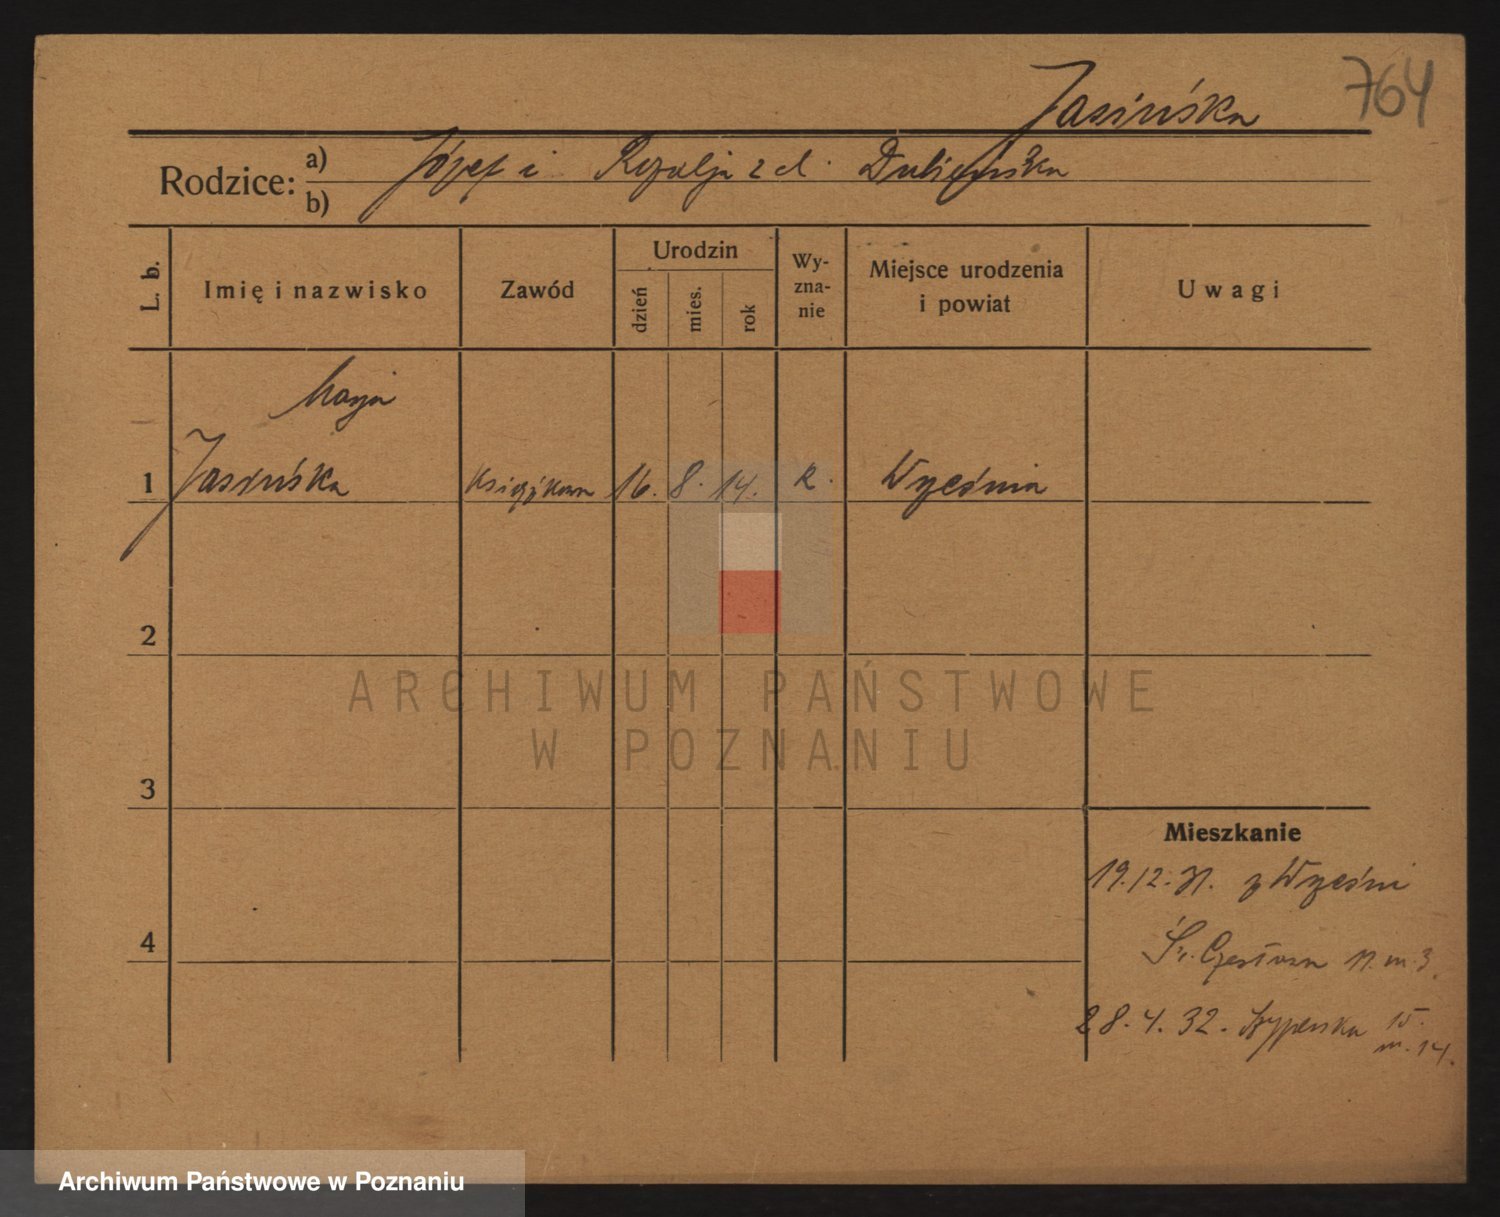 764
Jasińska
Rodzice: a) Józef i Rozalja z d.
b)
L. b.
Imię i nazwisko
Zawód
Urodzin
dzień
mies.
rok
Wy-
zna-
nie
Miejsce urodzenia
i powiat
Uwagi
Marja
1 Jasińska 16. 8. 14. R. Września
2
3
4
ARCHIWUM PAŃSTWOWE
W POZNANIU
Mieszkanie
19.12.31. z Wrześni
Św. Czesława 11. m. 3.
28.4.32. Szyperska 15.
m. 14.
Archiwum Państwowe w Poznaniu